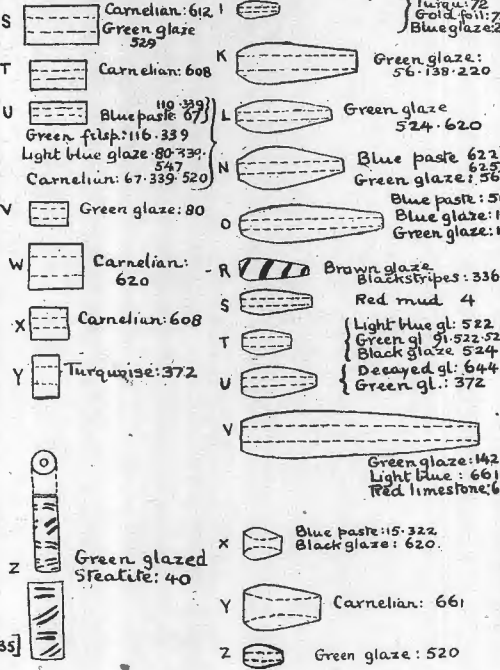 S
Carnelian: 612
Green glaze
529
T
Carnelian: 608
U
110·339
Blue paste 67
Green filsp: 116·339
Light blue glaze·80·339·
547
Carnelian: 67·339·520
V
Green glaze: 80
W
Carnelian:
620
X
Carnelian: 608
Y
Turquoise: 372
Z
Green glazed
Steatite: 40
35]
I
Turqu: 72
Gold foil: 7
Blue glaze: 2
K
Green glaze:
56·138·220
L
Green glaze
524·620
N
Blue paste 622
625
Green glaze: 56
O
Blue paste: 5
Blue glaze: 1
Green glaze:
R
Brown glaze
Black stripes: 336
S
Red mud 4
T
Light blue gl: 522
Green gl 91·522·52
Black glaze 524
U
Decayed gl: 644
Green gl.: 372
V
Green glaze: 142
Light blue: 661
Red limestone: 6
X
Blue paste: 15·322
Black glaze: 620
Y
Carnelian: 661
Z
Green glaze: 520